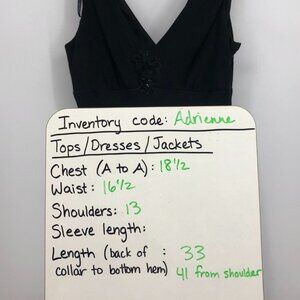 Inventory code: Adrienne
Tops/Dresses/Jackets
Chest (A to A): 18 1/2
Waist: 16 1/2
Shoulders: 13
Sleeve length:
Length (back of : 33
collar to bottom hem) 41 from shoulder